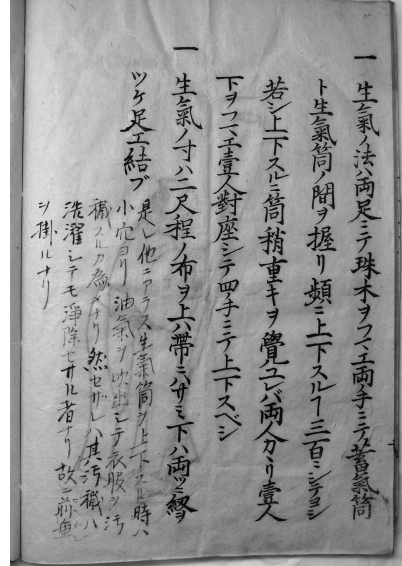 一 生氣ノ法ハ両足ニテ珠木ヲフマエ両手ニテ蓄氣筒
ト生氣筒ノ間ヲ握リ頻ニ上下スルヿ三百ニシテヨシ
若シ上下スルニ筒稍重キヲ覺ユレバ両人カヽリ壹人
下ヲフマエ壹人對座シテ四手ニテ上下スベシ
一 生氣ノ寸ハ二尺程ノ布ヲ上ハ帯ニハサミ下ハ両ツニ
ツケ足エ結ブ
是レ他ニアラス生氣筒ヲ上下スル時ハ
小穴ヨリ油氣ヲ吹出シテ衣服ヲ汚
穢スルカ為メナリ然セザレハ其汚穢ハ
洗濯シテモ淨除セサル者ナリ故ニ前垂
ヲ掛ルナリ